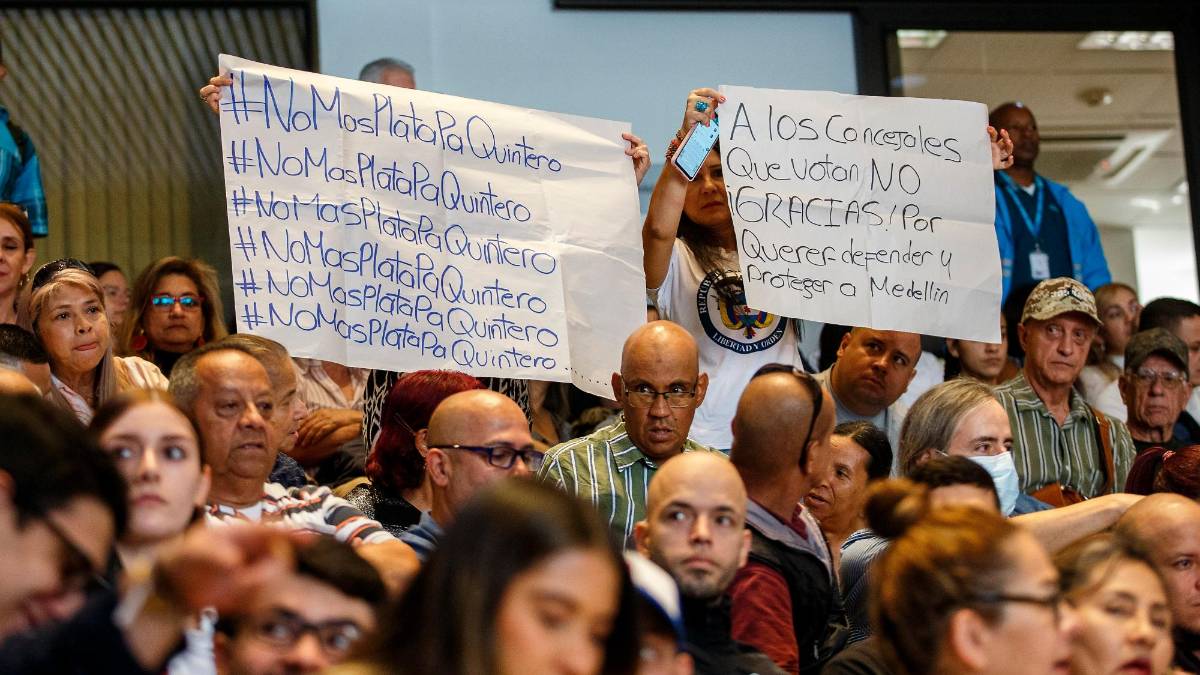 #NoMasPlataPaQuintero
#NoMasPlataPaQuintero
#NoMasPlataPaQuintero
#NoMasPlataPaQuintero
#NoMasPlataPaQuintero
#NoMasPlataPaQuintero
A los Concejales
Que votan NO
¡GRACIAS! Por
Querer defender y
Proteger a Medellin
REPUBLICA
LIBERTAD Y ORDEN